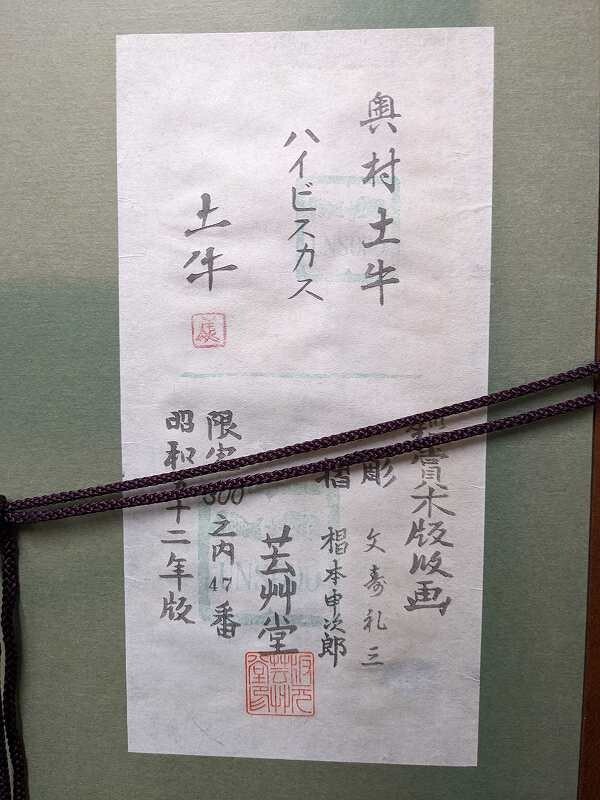 奥村土牛
ハイビスカス
土牛
木版版画
彫 文寿礼三
摺 椙本申次郎
芸艸堂
限定300之内47番
昭和五十二年版